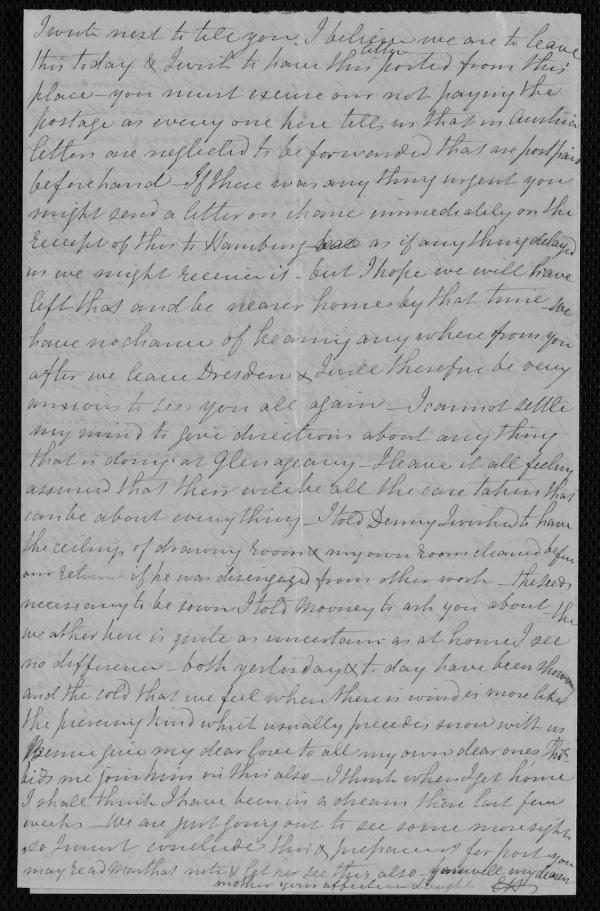 I wrote next to tell you. I believe we are to leave
this today & I wish to have this letter posted from this
place – you must excuse our not paying the
postage as every one here tells us that in Austria
letters are neglected to be forwarded that are post paid
before hand – If there was any thing urgent you
might send a letter on chance immediately on the
receipt of this to Hamburg as if any thing delayed
us we might receive it – but I hope we will have
left that and be nearer home by that time – we
have no chance of hearing any where from you
after we leave Dresden & I will therefore be very
anxious to see you all again – I cannot settle
my mind to give directions about any thing
that is doing at Glenageary – I leave it all feeling
assured that there will be all the care taken that
can be about everything – I told Denny I wished to have
the ceilings of drawing room & my own room cleaned before
our return if he was disengaged from other work – the seeds
necessary to be sown I told Mooney to ask you about the
weather here is quite as uncertain as at home I see
no difference – both yesterday & to day have been showery
and the cold that we feel when there is wind is more like
the piercing kind which usually precedes snow with us
give my dear love to all my own dear ones
bids me join him in this also – I think when I get home
I shall think I have been in a dream these last few
weeks – We are just going out to see some more sights
so I must conclude this & prepare it for post you
may read Martha's note & let her see this also – farewell my dearest
mother your affectionate daughter